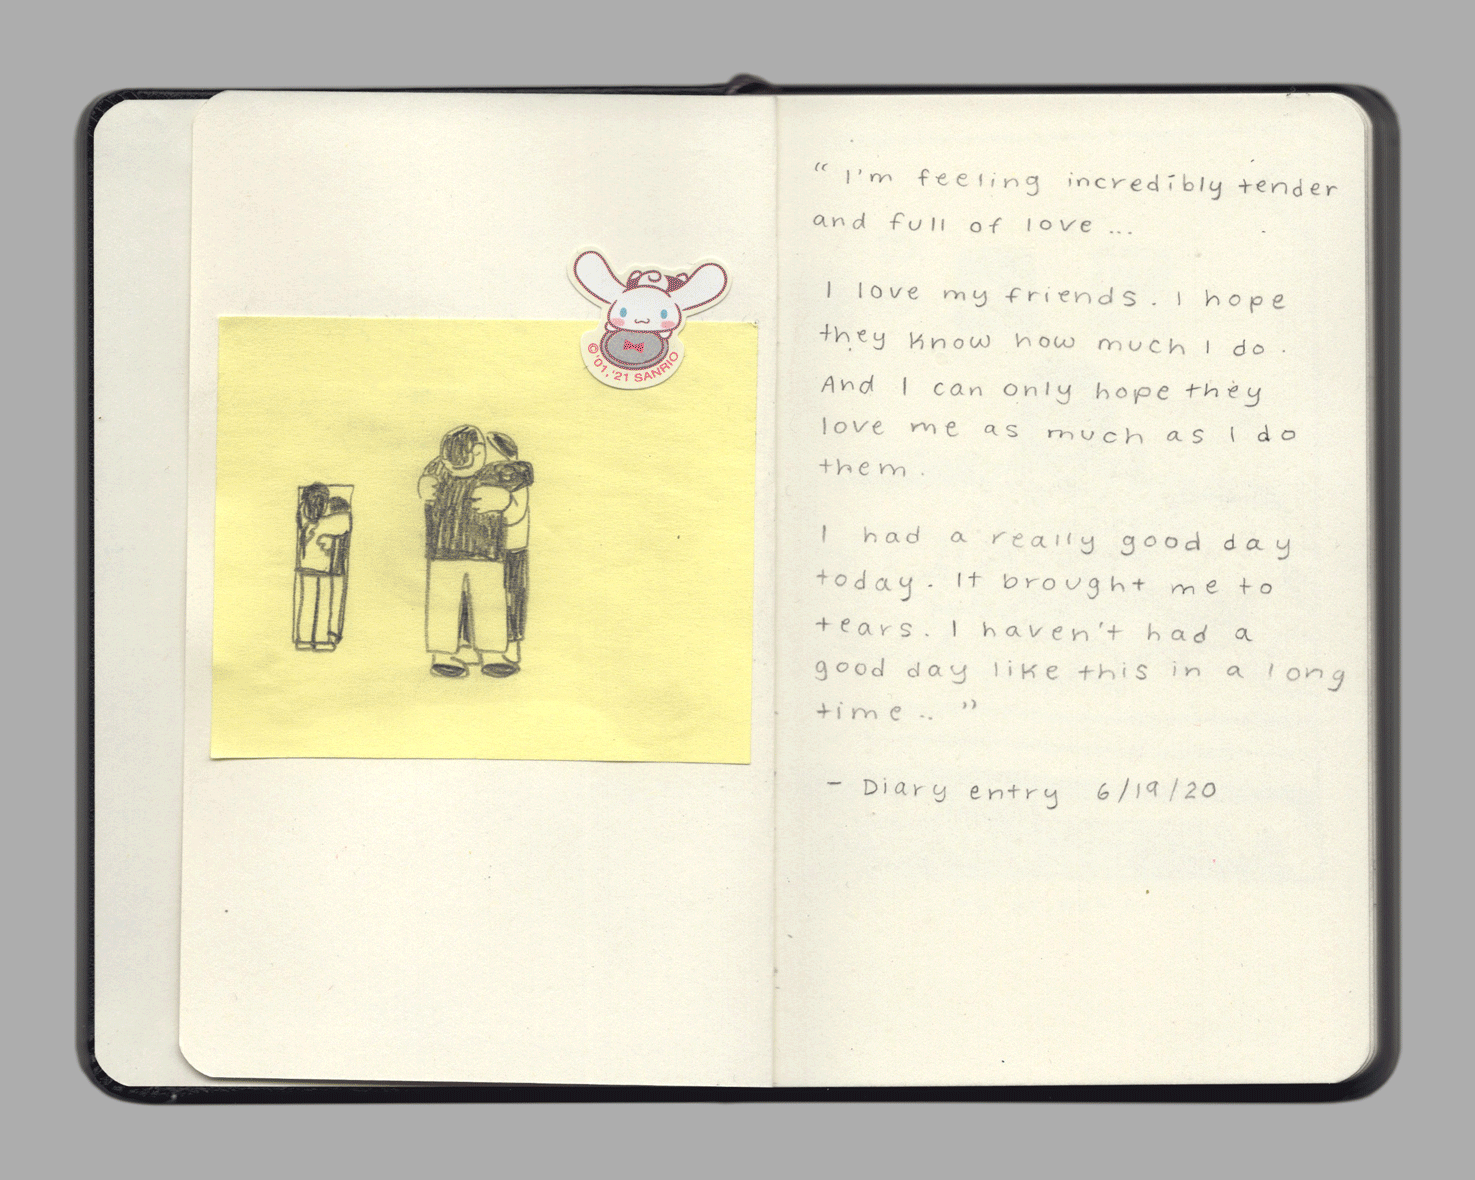 ©'01,'21 SANRIO
“ I'm feeling incredibly tender
and full of love ...
I love my friends. I hope
they know how much I do.
And I can only hope they
love me as much as I do
them.
I had a really good day
today. It brought me to
tears. I haven't had a
good day like this in a long
time.. ”
- Diary entry 6/19/20